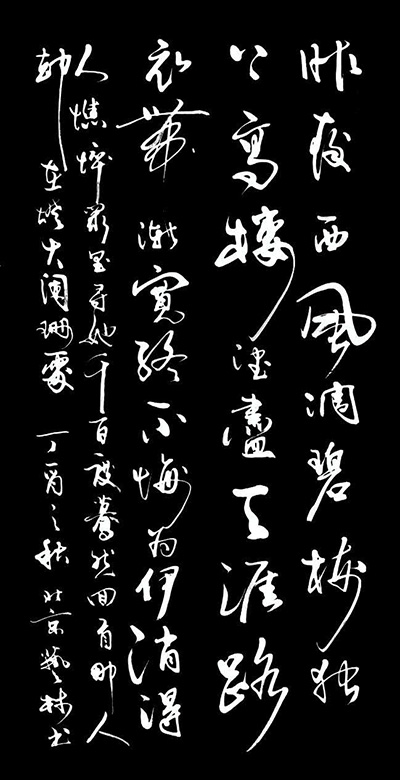 昨夜西風凋碧樹獨
上高樓望盡天涯路
衣帶漸寬終不悔為伊消得
人憔悴眾里尋她千百度驀然回首那人
却在燈火闌珊處 丁酉之秋北京藝林書